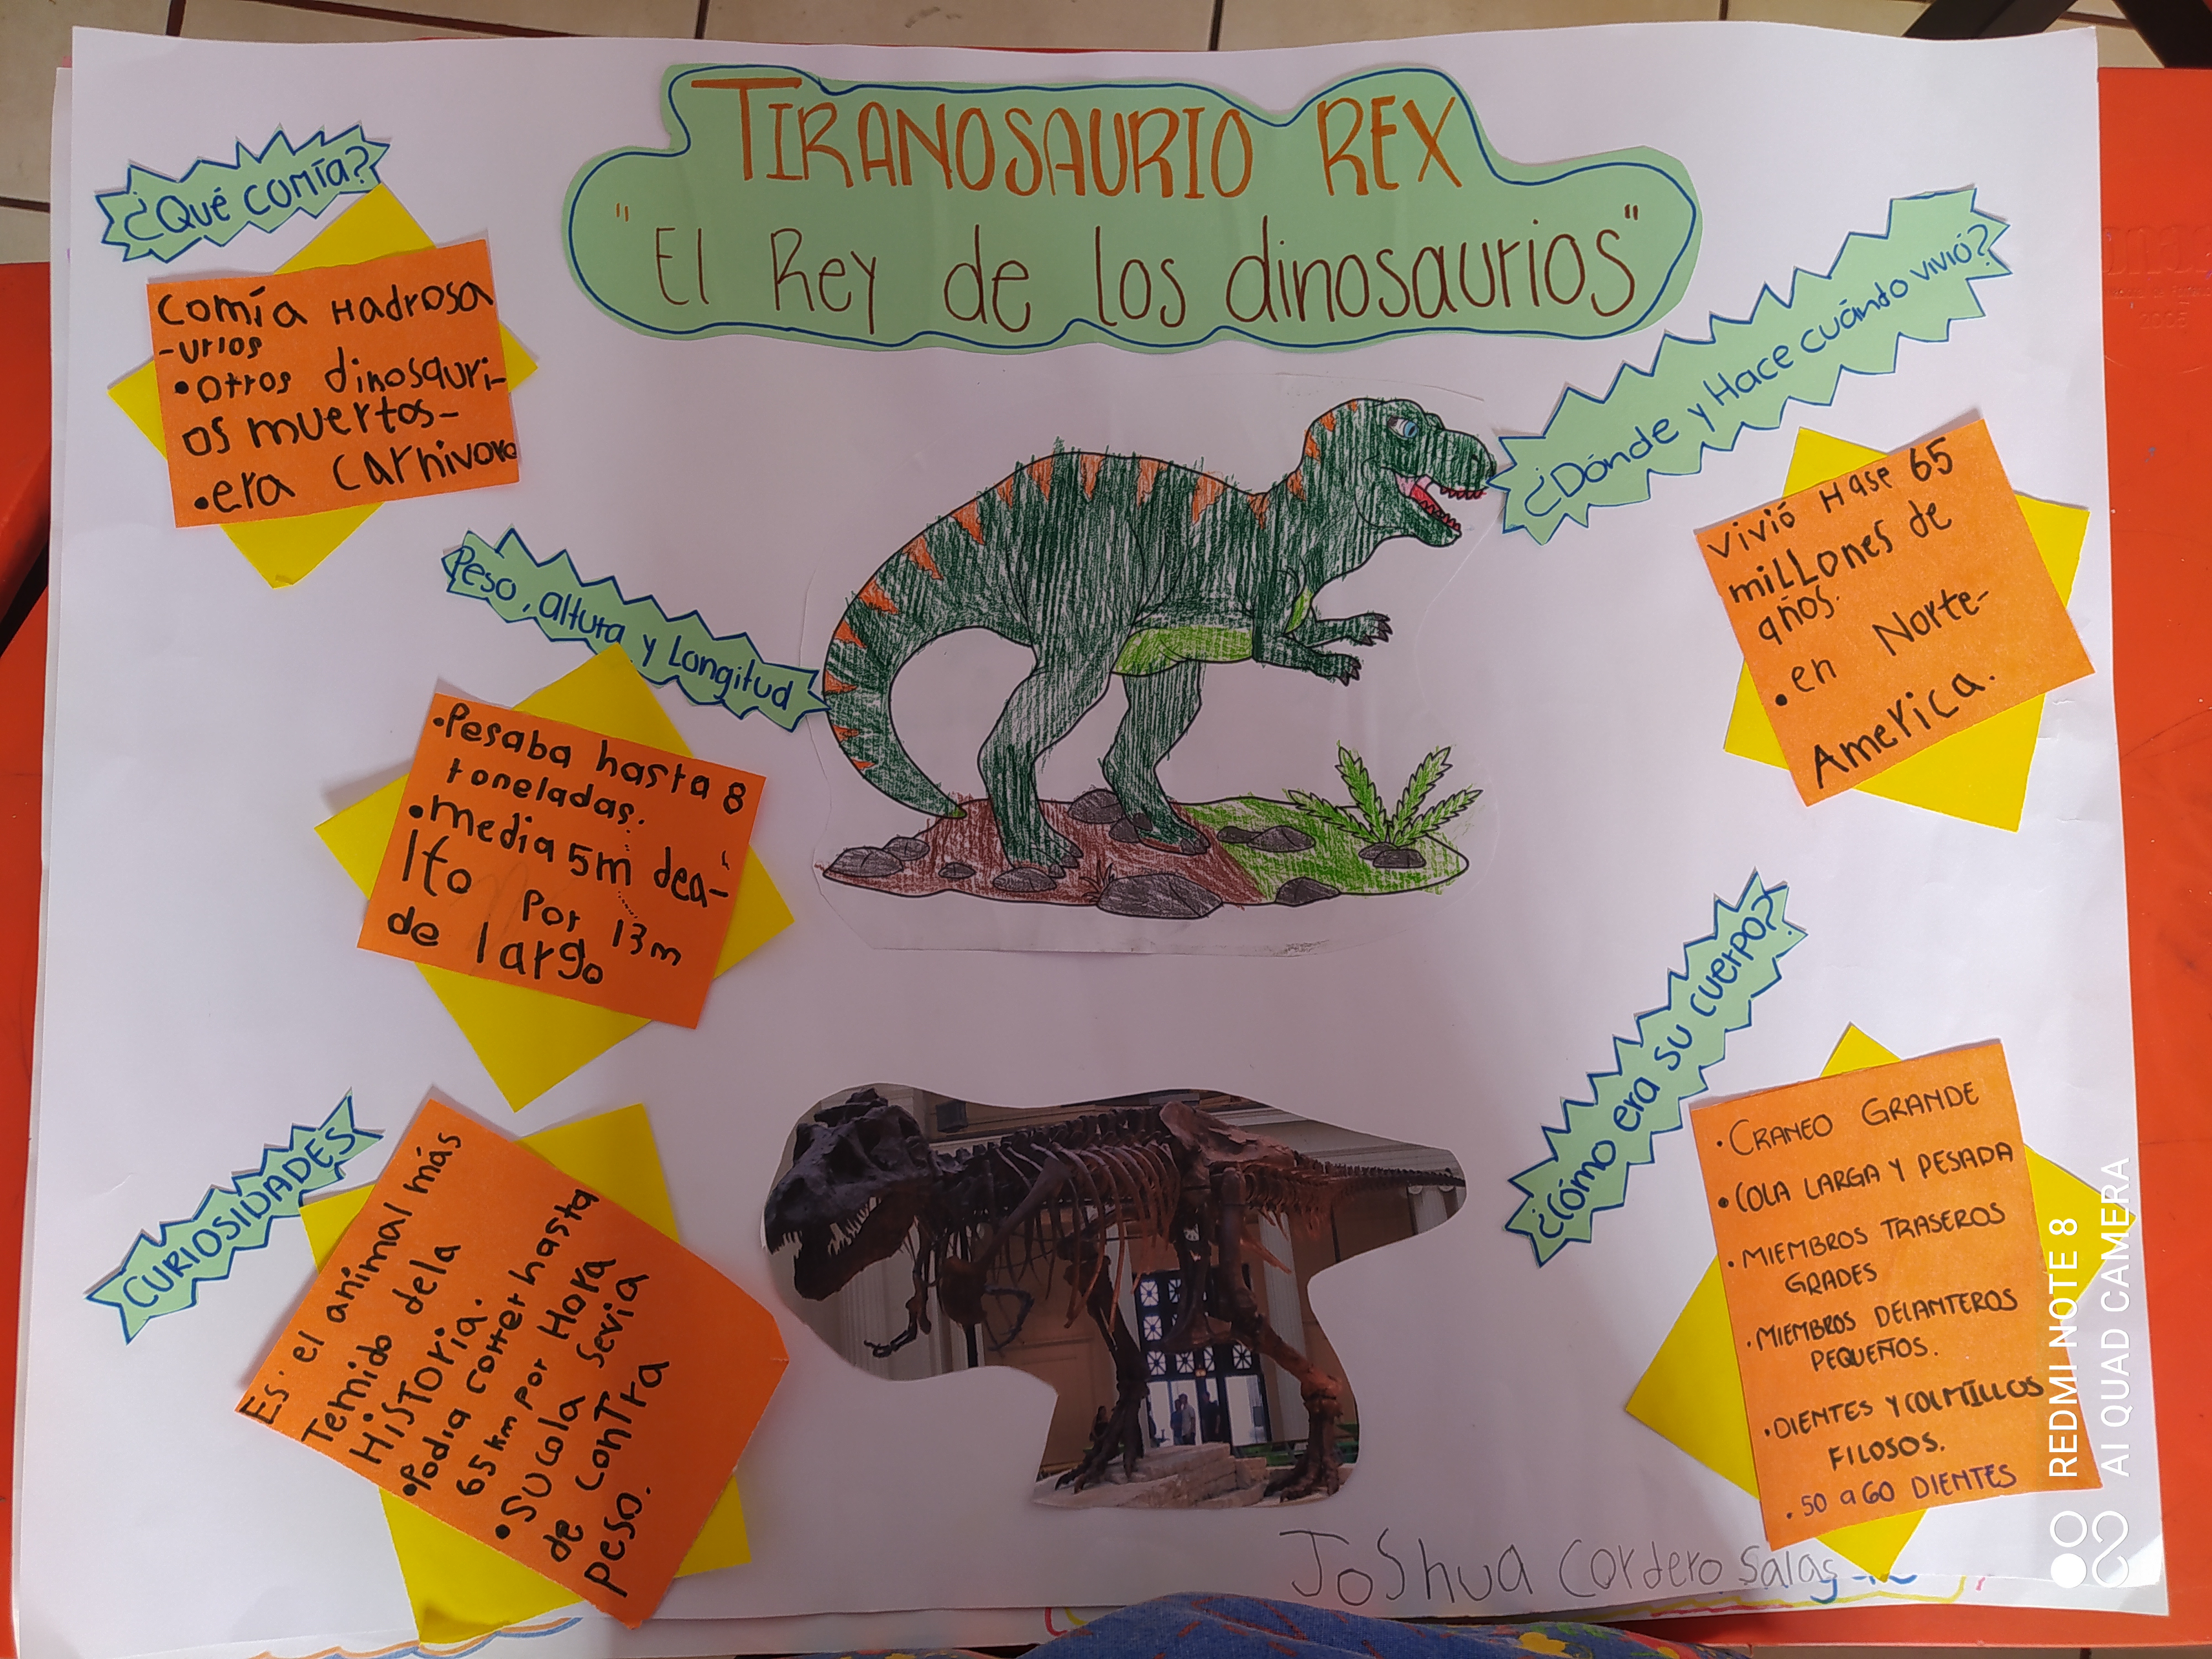 TIRANOSAURIO REX
"El Rey de los dinosaurios"
¿Qué comía?
comía Hadrosa
-urios
•otros dinosauri-
os muertos-
•era carnivoro
Peso, altura y Longitud
•Pesaba hasta 8
toneladas.
•media 5m dea-
lto por 13m
de largo
CURIOSIDADES
Es. el animal más
Temido dela
HiSTORia.
•Podia correr hasta
65 km por Hora
•SUcola Sevia
de conTra
Peso.
¿Dónde y Hace cuánto vivió?
vivió Hase 65
miLLones de
años.
•en Norte-
America.
¿Cómo era su cuerpo?
•CRANEO GRANDE
•COLA LARGA Y PESADA
•MIEMBROS TRASEROS
GRADES
•MIEMBROS DELANTEROS
PEQUEÑOS.
•DIENTES Y COLMILLOS
FILOSOS.
•50 a 60 DIENTES
JoShua Cordero Salas
REDMI NOTE 8
AI QUAD CAMERA